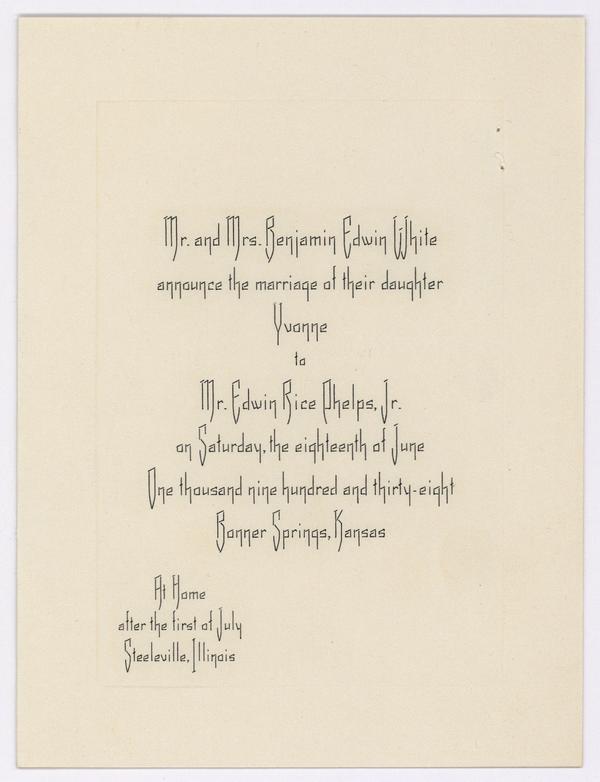 Mr. and Mrs. Benjamin Edwin White
announce the marriage of their daughter
Yvonne
to
Mr. Edwin Rice Phelps, Jr.
on Saturday, the eighteenth of June
One thousand nine hundred and thirty-eight
Bonner Springs, Kansas
At Home
after the first of July
Steeleville, Illinois